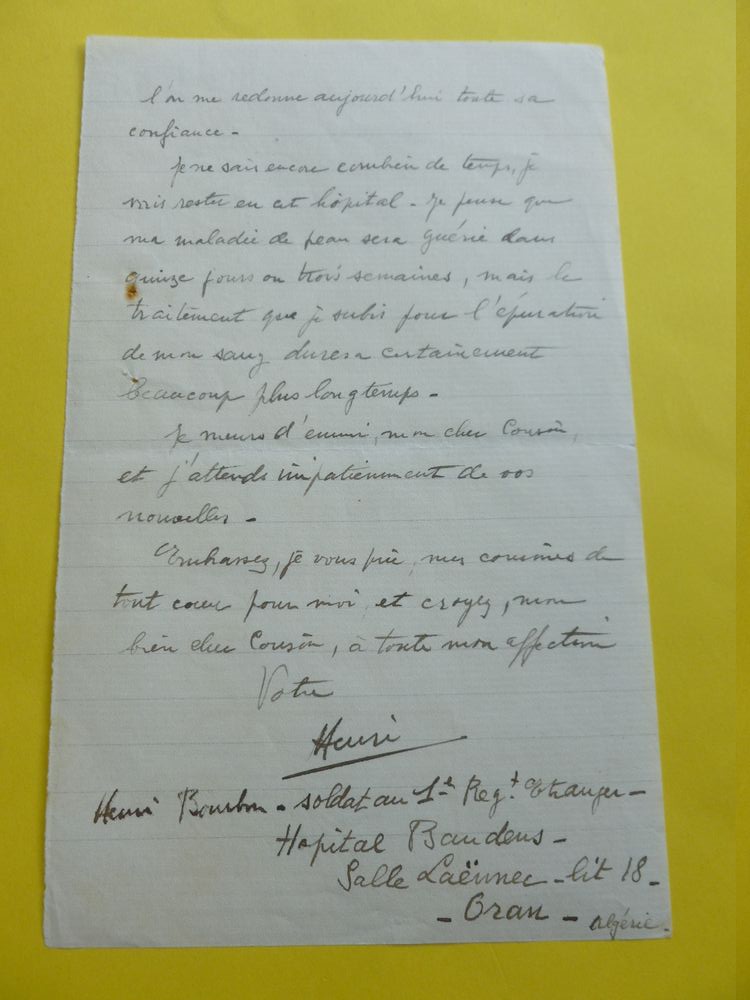 l'on me redonne aujourd'hui toute sa
confiance -
Je ne sais encore combien de temps, je
vais rester en cet hôpital - Je pense que
ma maladie de peau sera guérie dans
quinze jours ou trois semaines, mais le
traitement que je subis pour l'épuration
de mon sang durera certainement
beaucoup plus longtemps -
Je meurs d'ennui, mon cher Cousin,
et j'attends impatiemment de vos
nouvelles -
Embrassez, je vous prie, mes cousines de
tout cœur pour moi, et croyez, mon
bien cher Cousin, à toute mon affection
Votre
Henri
Henri Bourbon - soldat au 1e Regt Etranger -
Hopital Baudens -
Salle Laënnec - lit 18 -
- Oran - Algérie -